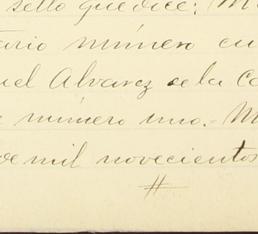 sello que dice: M
tario número cu
uel Alvarez de la Ca
número uno.- M
de mil novecientos